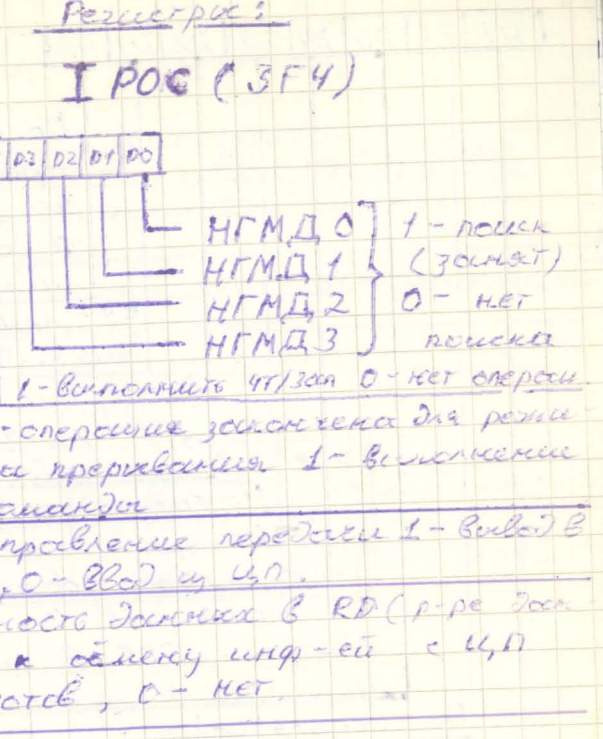 Регистры:
I РОС (3F4)
D3 D2 D1 D0
НГМД 0 1 - поиск
НГМД 1 (занят)
НГМД 2 0 - нет
НГМД 3 поиска
1 - выполнить чт/зап 0 - нет операци
- операция закончена для режи-
а прерывания 1 - выполнение
оманды
правление передачи 1 - вывод в
, 0 - ввод из ЦП.
ность данных в RD (р-ре дан
к обмену инф-ей с ЦП
отов, 0 - нет.